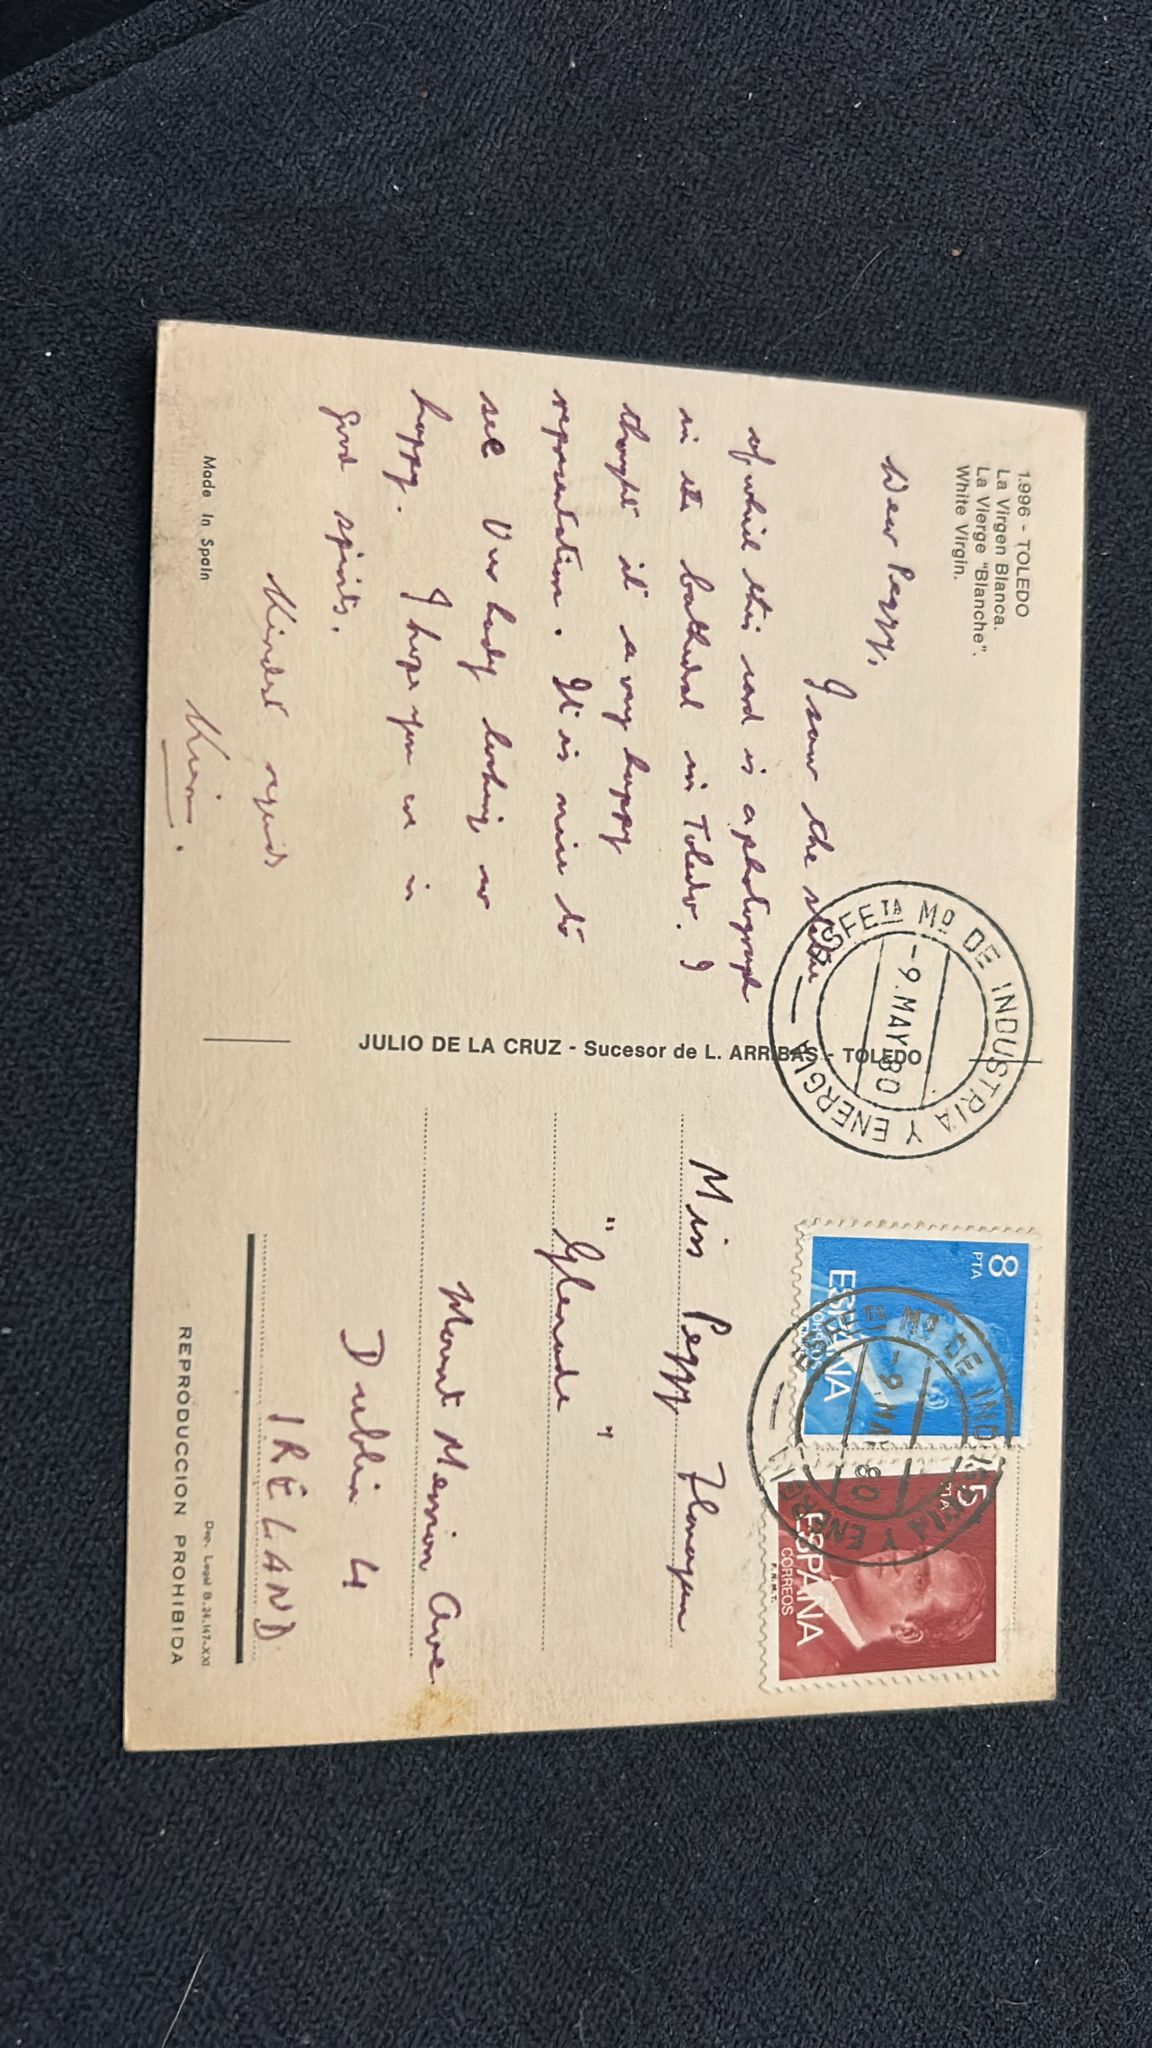 1.996 - TOLEDO
La Virgen Blanca.
La Vierge "Blanche".
White Virgin.
Dear Peggy,
I saw the statue
of which this card is a photograph
in the Cathedral in Toledo. I
thought it a very happy
representation. It is nice to
see Our Lady looking so
happy. I hope you are in
good spirits.
Kindest regards
Made In Spain
JULIO DE LA CRUZ - Sucesor de L. ARRIBAS - TOLEDO
ESFETA Mº DE INDUSTRIA Y ENERGIA
-9.MAY 80
8 PTA
ESPAÑA
CORREOS
5 PTA
ESPAÑA
CORREOS
F.N.M.T.
ESFETA Mº DE INDUSTRIA Y ENERGIA
-9.MAY 80
Miss Peggy Flanagan
" "
Mount Merrion Ave
Dublin 4
IRELAND
Dep. Legal B.24.147-XXI
REPRODUCCION PROHIBIDA